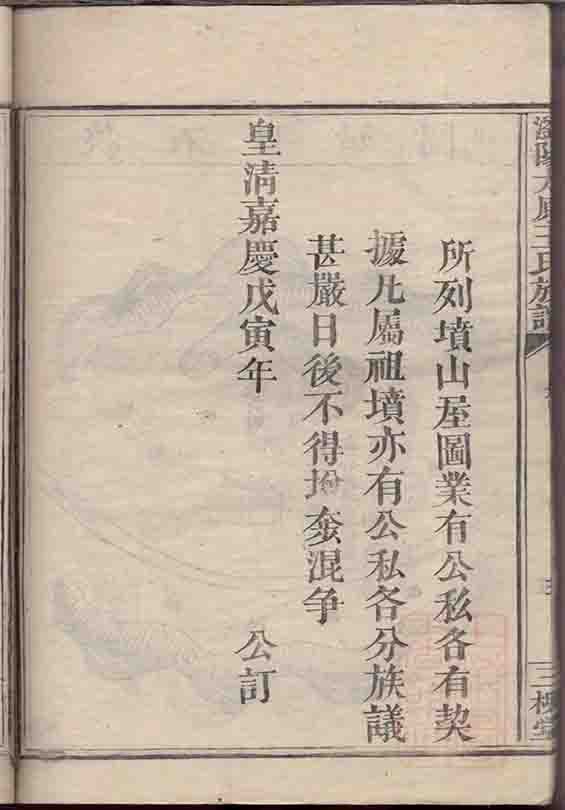 瀏陽太原王氏族譜
三槐堂
所列墳山屋圖業有公私各有契
據凡屬祖墳亦有公私各分族議
甚嚴日後不得增奪混争
皇清嘉慶戊寅年 公訂